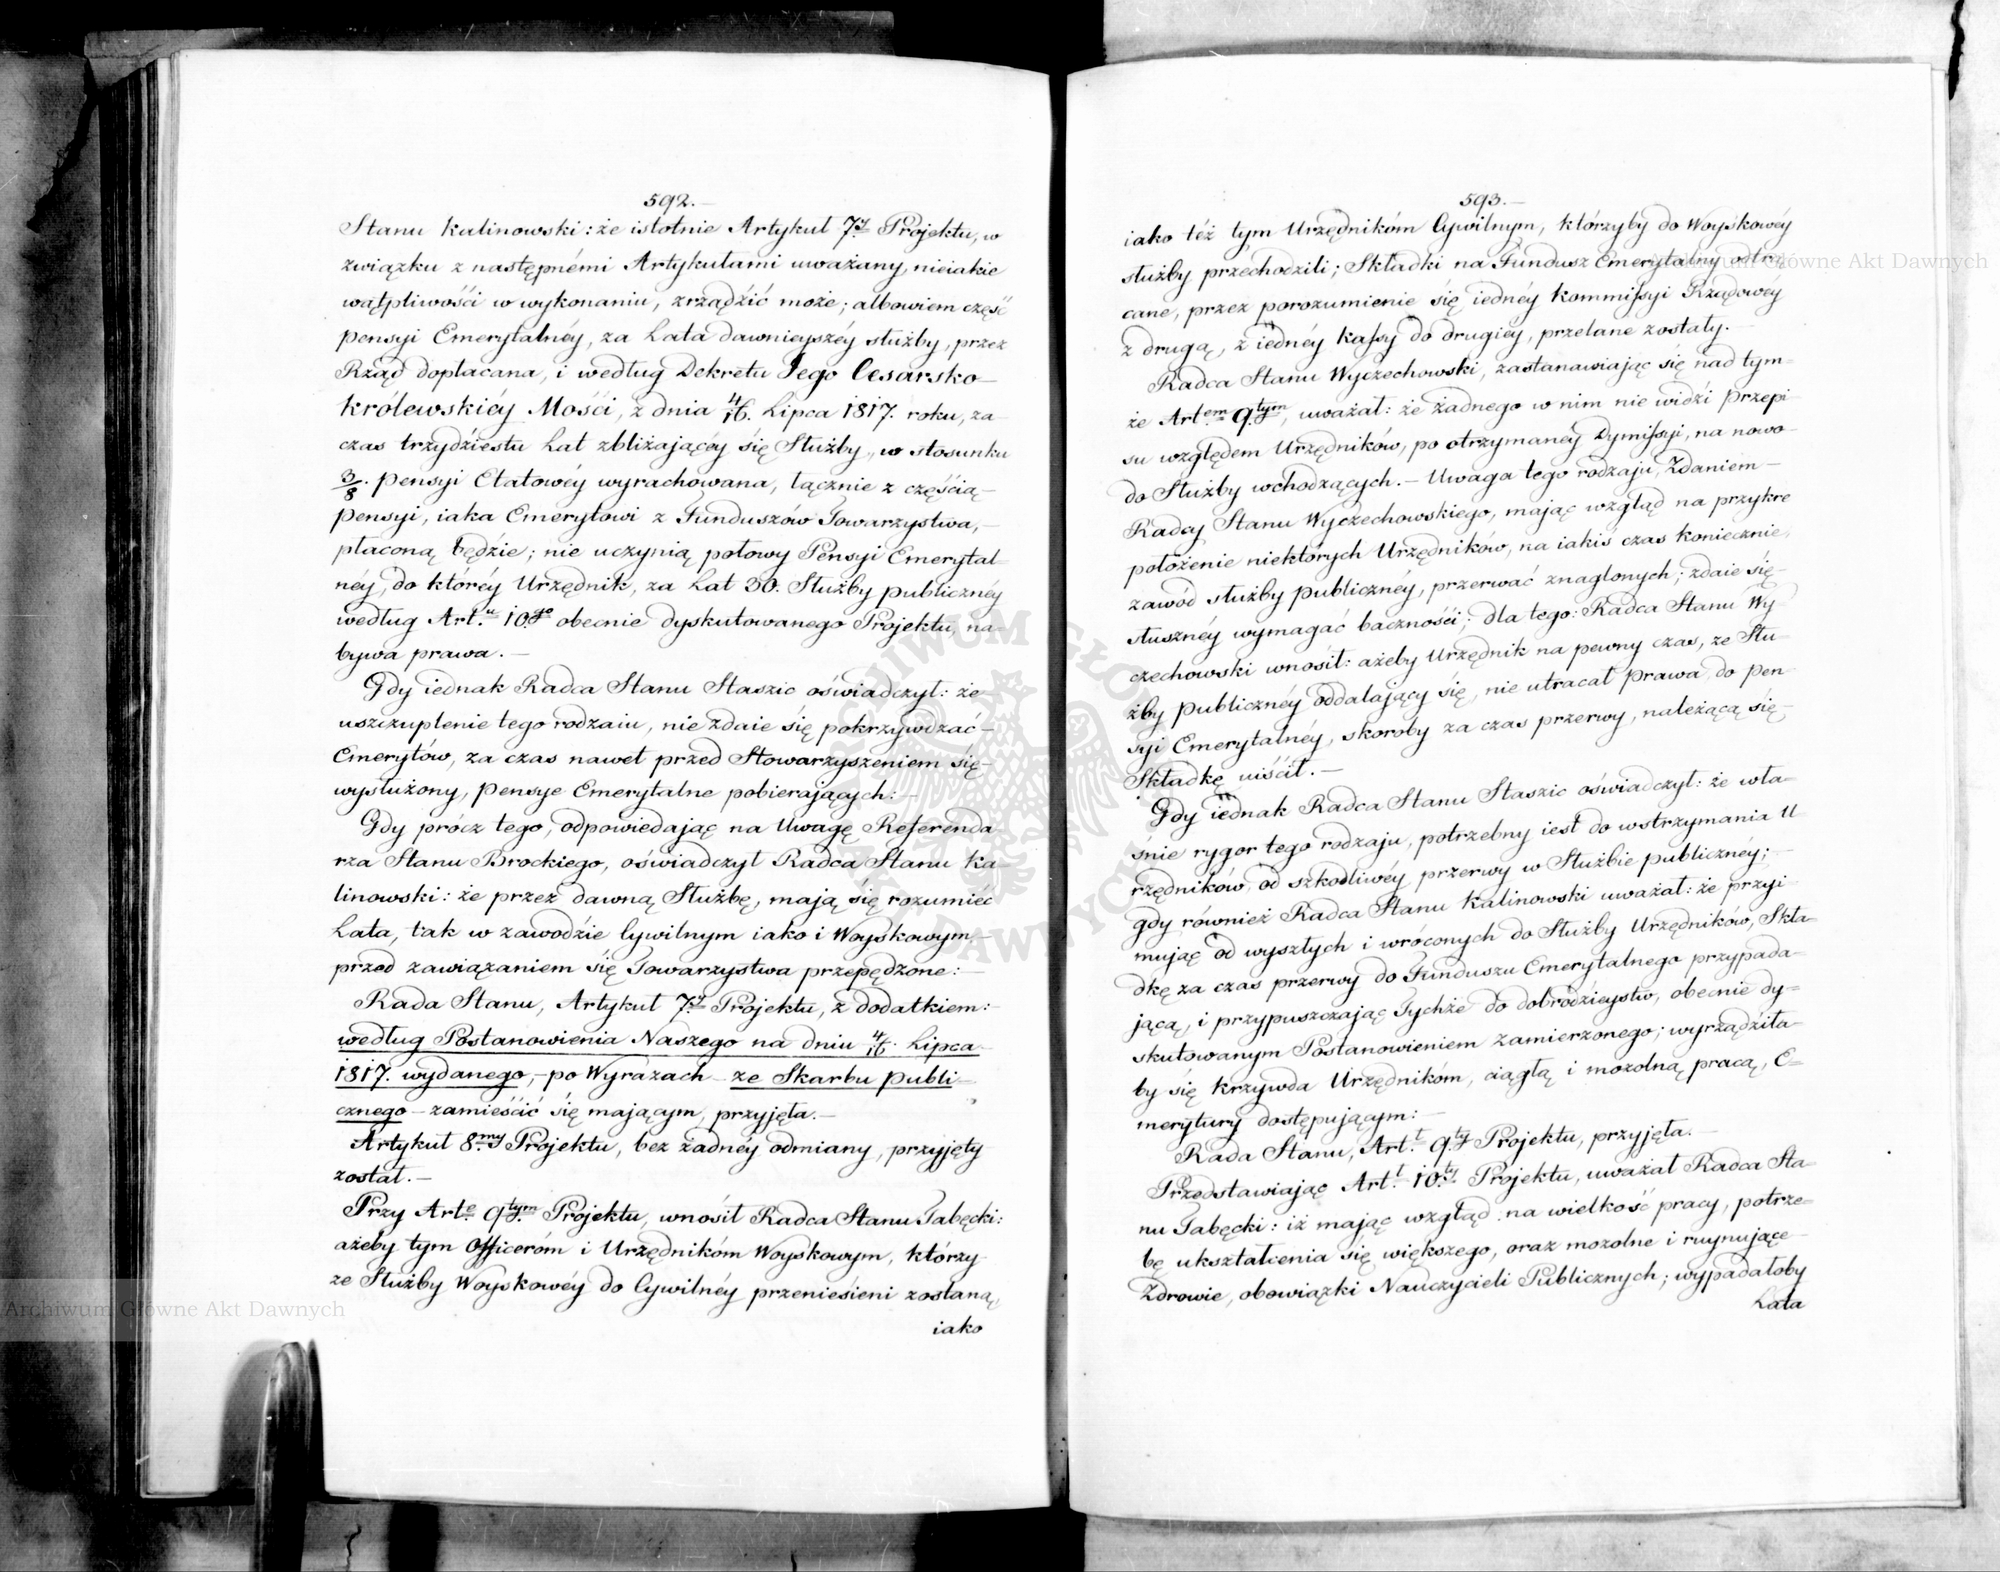 592.—
Stanu Kalinowski: że istotnie Artykuł 7y Projektu, w
związku z następnémi Artykułami uważany, nieiakie
wątpliwości w wykonaniu, zrządźić może; albowiem część
pensyi Emerytalnéy, za Lata dawnieyszéy służby, przez
Rząd dopłacana, i według Dekretu Jego Cesarsko—
Królewskiéy Mości, z dnia 4/16. Lipca 1817. roku, za—
czas trzydźiestu Lat zbliżaiącéy się Służby, w stosunku
3/8. pensyi Etatowéy wyrachowana, łącznie z częścią—
pensyi, iaka Emerytowi z Funduszów Towarzystwa,—
płaconą będźie; nie uczynią połowy Pensyi Emerytal—
néy, do któréy Urzędnik, za Lat 30. Służby publicznéy
według Art.u 10.go obecnie dyskutowanego Projektu, na—
bywa prawa.—
Gdy iednak Radca Stanu Staszic oświadczył: że
uszczuplenie tego rodzaiu, nie zdaie się pokrzywdzać—
Emerytów, za czas nawet przed Stowarzyszeniem się—
wysłużony, pensye Emerytalne pobierających:—
Gdy prócz tego, odpowiedając na Uwagę Referenda—
rza Stanu Brockiego, oświadczył Radca Stanu Ka
linowski: że przez dawną Służbę, mają się rozumiéć
Lata, tak w zawodźie Cywilnym iako i Woyskowym,—
przed zawiązaniem się Towarzystwa przepędzone:—
Rada Stanu, Artykuł 7y Projektu, z dodatkiem:—
według Postanowienia Naszego na dniu 4/16. Lipca
1817. wydanego,—po Wyrazach—ze Skarbu publi—
cznego—zamieśćić się mającym, przyjęła.—
Artykuł 8.my Projektu, bez żadnéy odmiany, przyjęty
został.—
Przy Art.e 9.tym Projektu, wnośił Radca Stanu Tabęcki:
ażeby tym Officeróm i Urzędnikóm Woyskowym, którzy
ze Służby Woyskowéy do Cywilnéy przeniesieni zostaną,
iako
593.—
iako téż tym Urzędnikóm Cywilnym, którzyby do Woyskowéy
służby przechodzili; Składki na Fundusz Emerytalny odtrą
cane, przez porozumienie się iednéy Kommissyi Rządowey
z drugą, z iednéy kassy do drugiéy, przelane zostały.—
Radca Stanu Wyczechowski, zastanawiając się nad tym—
że Art.em 9.tym, uważał: że żadnego w nim nie widźi przepi
su względem Urzędników, po otrzymanéy Dymissyi, na nowo—
do Służby wchodzących.— Uwaga tego rodzaju, Zdaniem—
Radcy Stanu Wyczechowskiego, mając wzgląd na przykre
położenie niektórych Urzędników, na iakiś czas koniecznie,
zawód służby publicznéy, przerwać znaglonych; zdaie się—
słusznéy wymagać bacznośći; dla tego: Radca Stanu Wy
czechowski wnośił: ażeby Urzędnik na pewny czas, ze Słu
żby publicznéy oddalający się, nie utracał prawa do pen—
syi Emerytalnéy, skoroby za czas przerwy, należącą się—
Składkę uiśćił.—
Gdy iednak Radca Stanu Staszic oświadczył: że wła—
śnie rygor tego rodzaju, potrzebny iest do wstrzymania U—
rzędników, od szkodliwéy przerwy w Służbie publicznéy;—
gdy równiéż Radca Stanu Kalinowski uważał: że przyi—
mując od wyszłych i wróconych do Służby Urzędników, Skła—
dkę za czas przerwy do Funduszu Emerytalnego przypada—
jącą, i przypuszczając Tychże do dobrodzieystw, obecnie dy—
skutowanym Postanowieniem zamierzonego; wyrządźiła
by się krzywda Urzędnikóm, ciągłą i mozolną pracą, E—
merytury dostępującym:—
Rada Stanu, Art.t 9.ty Projektu, przyjęła.—
Przedstawiając Art.t 10.ty Projektu, uważał Radca Sta—
nu Tabęcki: iż mając wzgląd na wielkość pracy, potrze—
bę ukształcenia się większego, oraz mozolne i ruynujące—
Zdrowie, obowiązki Nauczycieli Publicznych; wypadałoby
Lata
Archiwum Główne Akt Dawnych
Archiwum Główne Akt Dawnych
ARCHIWUM GŁÓWNE AKT DAWNYCH